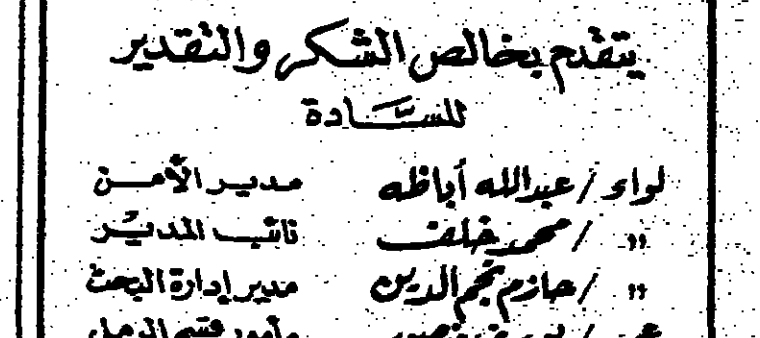 يتقدم بخالص الشكر والتقدير
للسادة
لواء / عبدالله أباظه مدير الأمن
" / محمد خلف نائب المدير
" / حازم نجم الدين مدير إدارة البحث